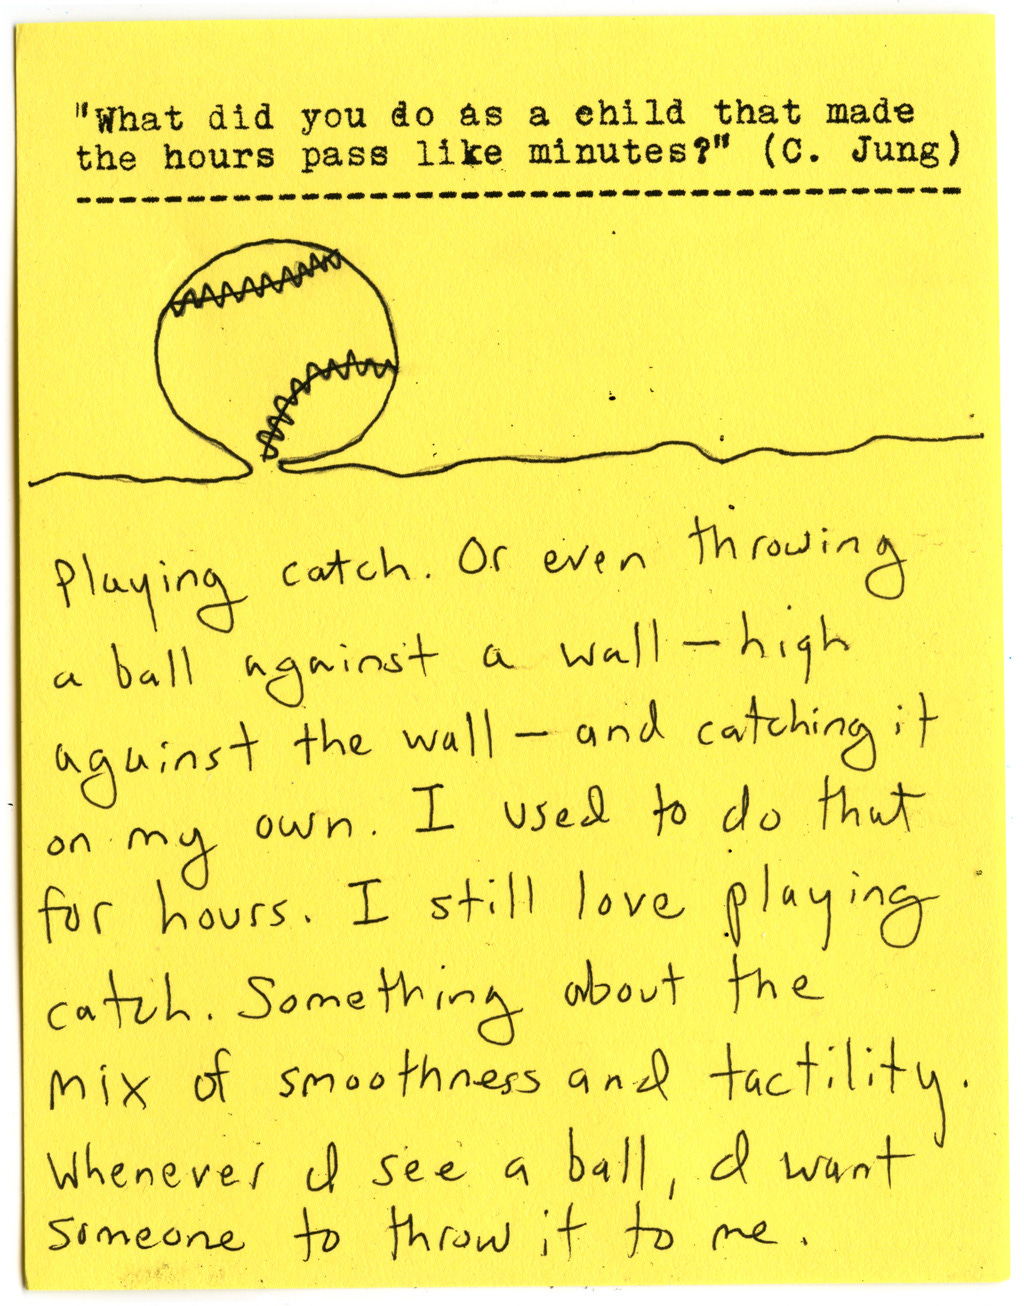 "What did you do as a child that made
the hours pass like minutes?" (C. Jung)
Playing catch. Or even throwing
a ball against a wall – high
against the wall – and catching it
on my own. I used to do that
for hours. I still love playing
catch. Something about the
mix of smoothness and tactility.
Whenever I see a ball, I want
someone to throw it to me.